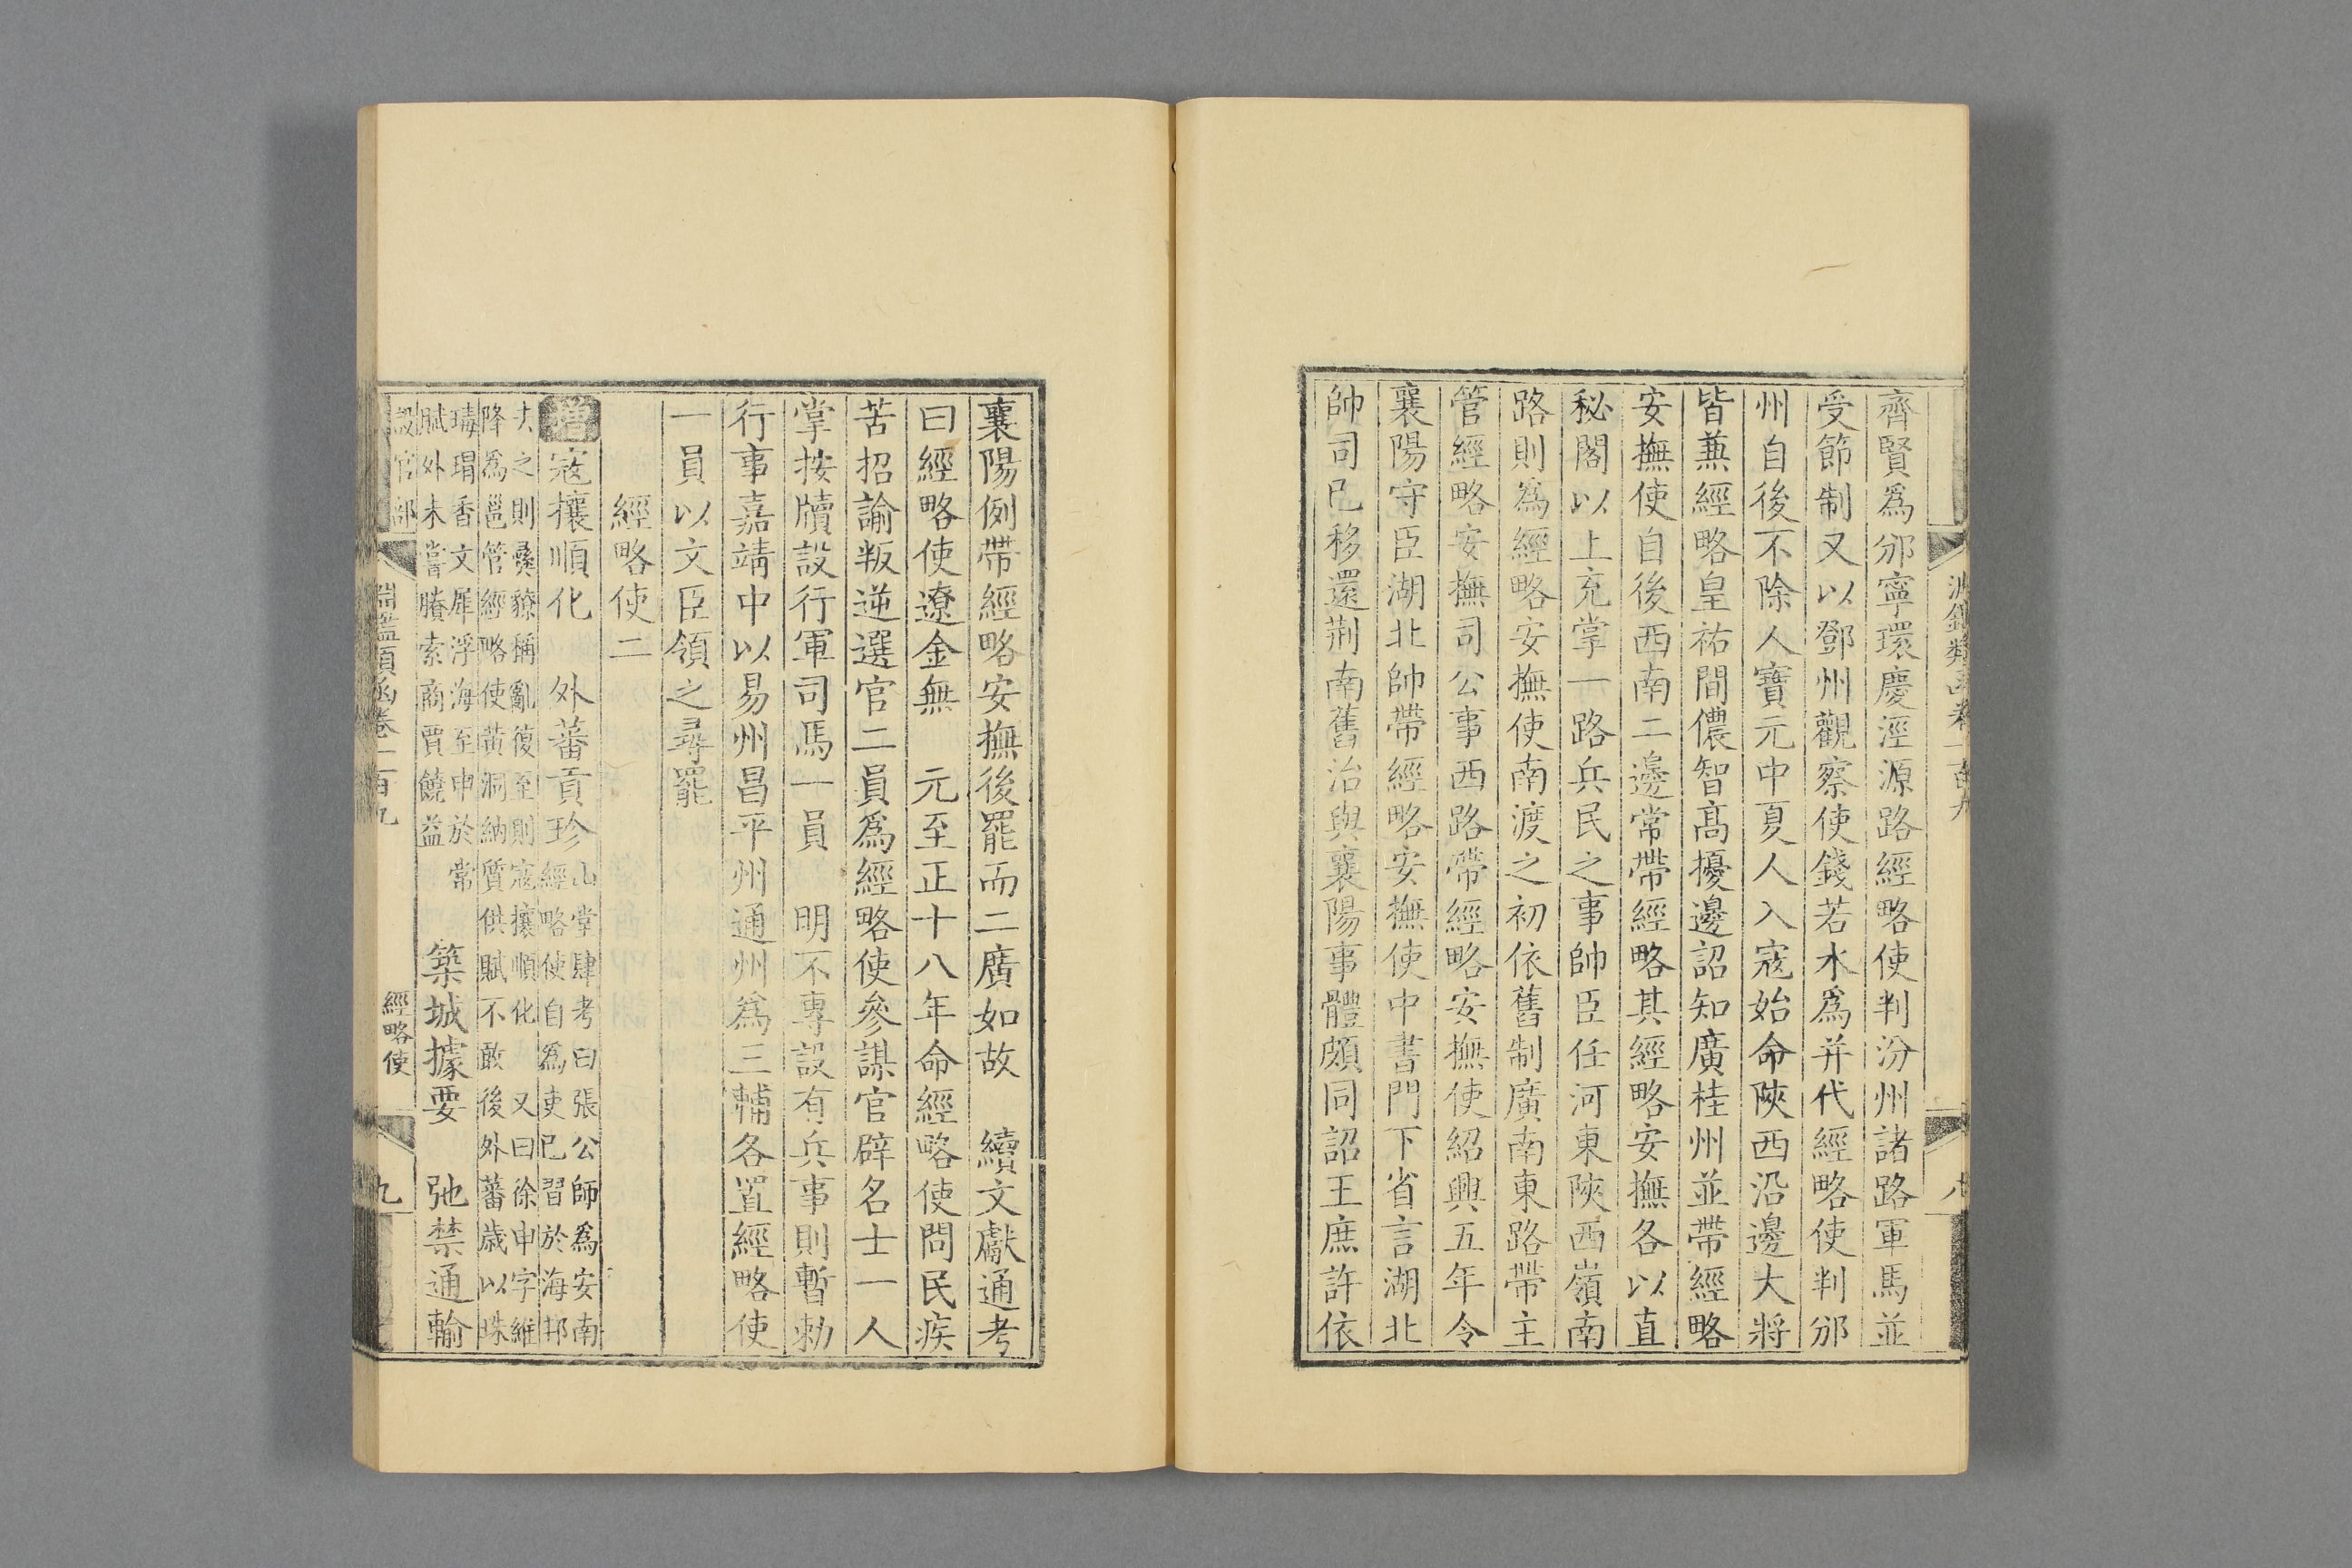 齊賢爲邠寧環慶涇源路經略使判汾州諸路軍馬並
受節制又以鄧州觀察使錢若水爲并代經略使判邠
州自後不除人寶元中夏人入寇始命陝西沿邊大將
皆兼經略皇祐間儂智高擾邊詔知廣桂州並帶經略
安撫使自後西南二邊常帶經略其經略安撫各以直
秘閣以上充掌一路兵民之事帥臣任河東陝西嶺南
路則爲經略安撫使南渡之初依舊制廣南東路帶主
管經略安撫司公事西路帶經略安撫使紹興五年令
襄陽守臣湖北帥帶經略安撫使中書門下省言湖北
帥司已移還荆南舊治與襄陽事體頗同詔王庶許依
襄陽例帶經略安撫後罷而二廣如故　續文獻通考
曰經略使遼金無　元至正十八年命經略使問民疾
苦招諭叛逆選官二員爲經略使參謀官辟名士一人
掌按牘設行軍司馬一員　明不專設有兵事則暫勅
行事嘉靖中以易州昌平州通州爲三輔各置經略使
一員以文臣領之尋罷
經略使二
增寇攘順化　外蕃貢珍
山堂肆考曰張公師爲安南
經略使自爲吏已習於海邦
夫之則彝獠稱亂復至則寇攘順化　又曰徐申字維
降爲邕管經略使黃洞納質供賦不敢後外蕃歲以珠
瑇瑁香文犀浮海至申於常
賦外未嘗賸索商賈饒益
築城據要　弛禁通輸
淵鑑類函卷一百九
經略使
九